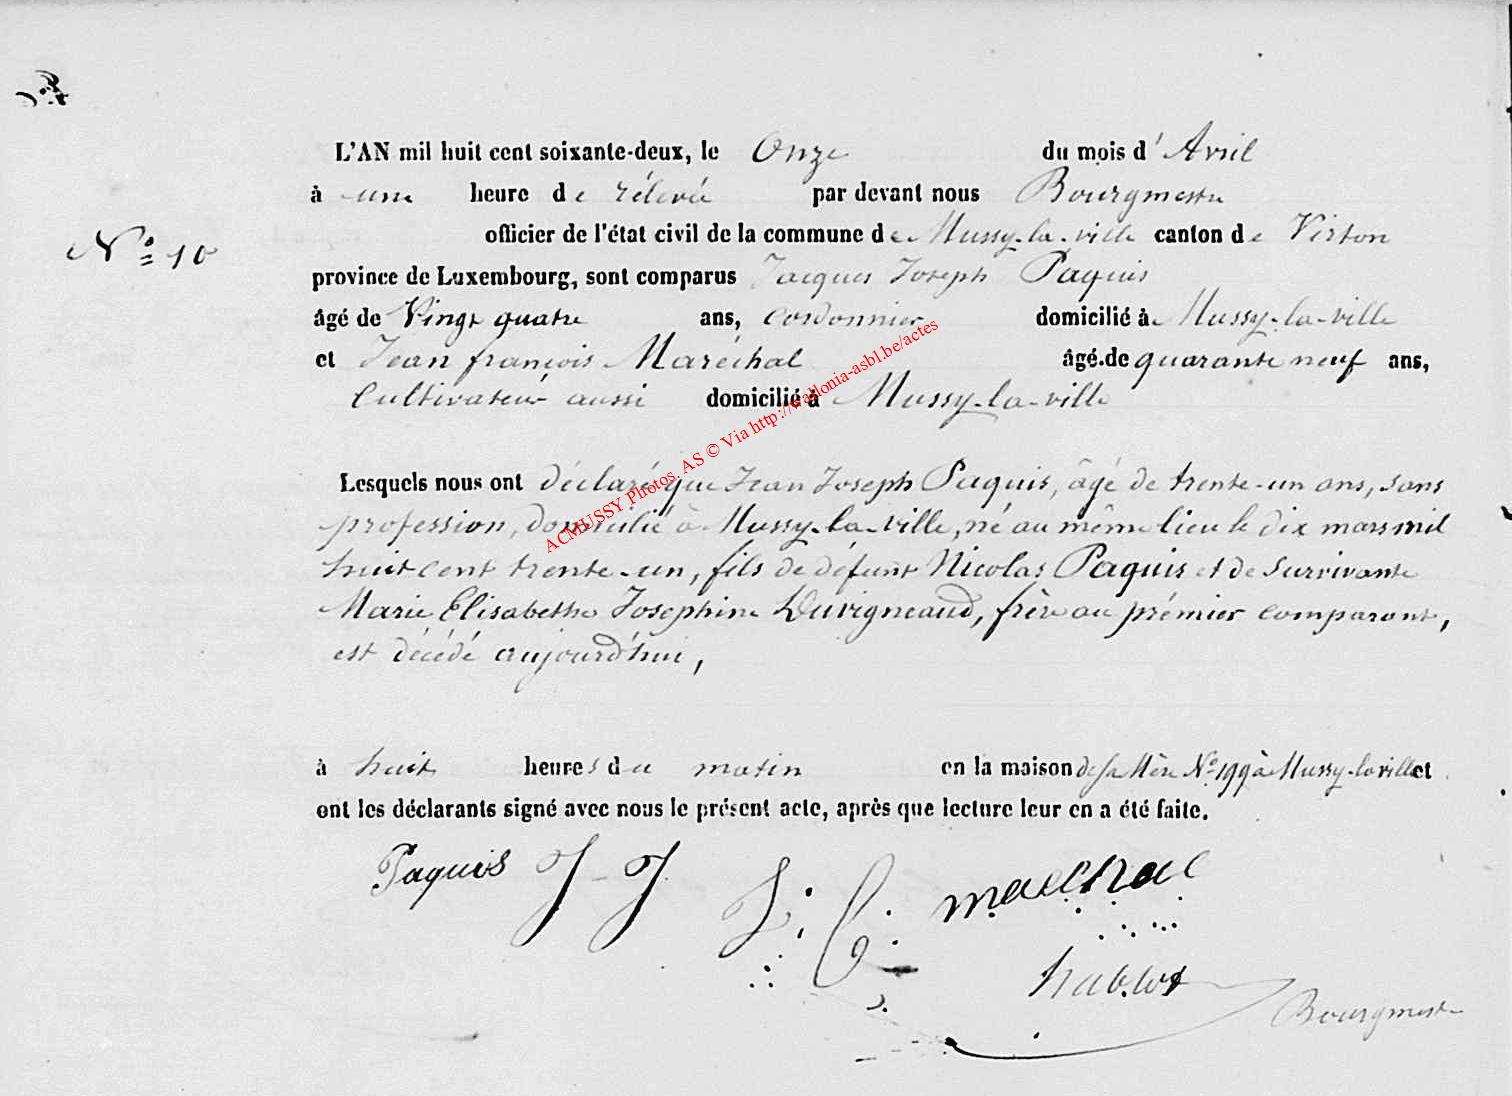 L'AN mil huit cent soixante-deux, le Onze du mois d' Avril
à une heure de rélevée par devant nous Bourgmestre
officier de l'état civil de la commune de Mussy-la-ville canton de Virton
N° 10
province de Luxembourg, sont comparus Jacques Joseph Paquis
âgé de Vingt quatre ans, cordonnier domicilié à Mussy-la-ville
et Jean françois Maréchal âgé de quarante neuf ans,
Cultivateur aussi domicilié à Mussy-la-ville
ACMUSSY Photos. AS © Via http://wallonia-asbl.be/actes
Lesquels nous ont déclaré que Jean Joseph Paquis, âgé de trente-un ans, sans
profession, domicilié à Mussy-la-ville, né au même lieu le dix mars mil
huit cent trente-un, fils de défunt Nicolas Paquis et de Survivante
Marie Elisabethe Josephine Duvigneaud, frère au prémier comparant,
est décédé aujourd'hui,
à huit heures du matin en la maison de sa Mère N° 199 à Mussy-la-ville et
ont les déclarants signé avec nous le présent acte, après que lecture leur en a été faite.
Paquis J-J
Bourgmestre